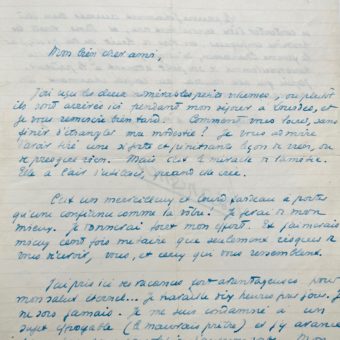 Mon bien cher ami,
J'ai reçu les deux admirables petits volumes, ou plutôt
ils sont arrivés ici pendant mon séjour à
je vous remercie bien tard. Comment vous louer, sans
finir d'étrangler ma modestie ? Je vous admire
d'avoir tiré une si forte et pénétrante leçon de rien, ou
de presque rien. Mais c'est le miracle de
Elle a l'air d'utiliser, quand elle crée.
C'est un merveilleux et lourd fardeau à porter
qu'une confiance comme la vôtre. Je ferai de mon
mieux. Je donnerai tout mon effort. Et j'aimerais
mieux cent fois me taire que seulement risquer de
vous décevoir, vous, et ceux qui vous ressemblent.
J'ai pris ici des vacances fort avantageuses pour
mon salut éternel... Je travaille dix heures par jour. Je
ne sors jamais. Je me suis condamné à un
sujet effroyable (le mauvais prêtre) et j'y avance